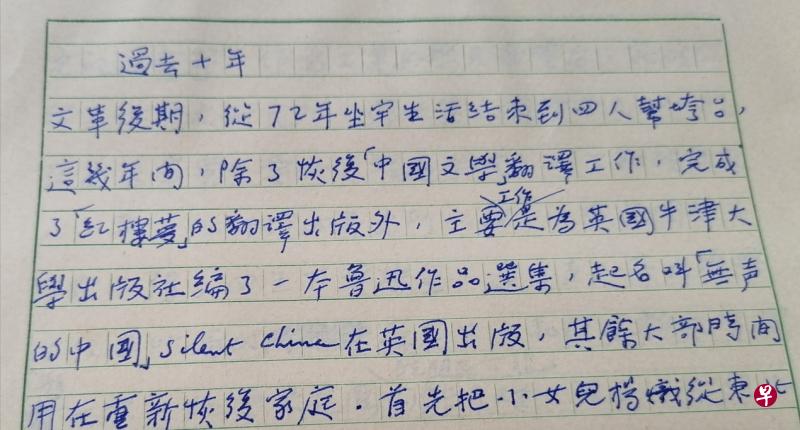 過去十年
文革後期，從72年坐牢生活結束到四人幫垮台，
這幾年间，除了恢後「中國文學」翻譯工作，完成
工作
了「紅樓夢」的翻譯出版外，主要是為英國牛津大
學出版社編了一本魯迅作品選集，起名叫「無声
的中國」silent China 在英國出版，其餘大部時间
用在重新恢後家庭．首先把小女兒楊熾從東北
早